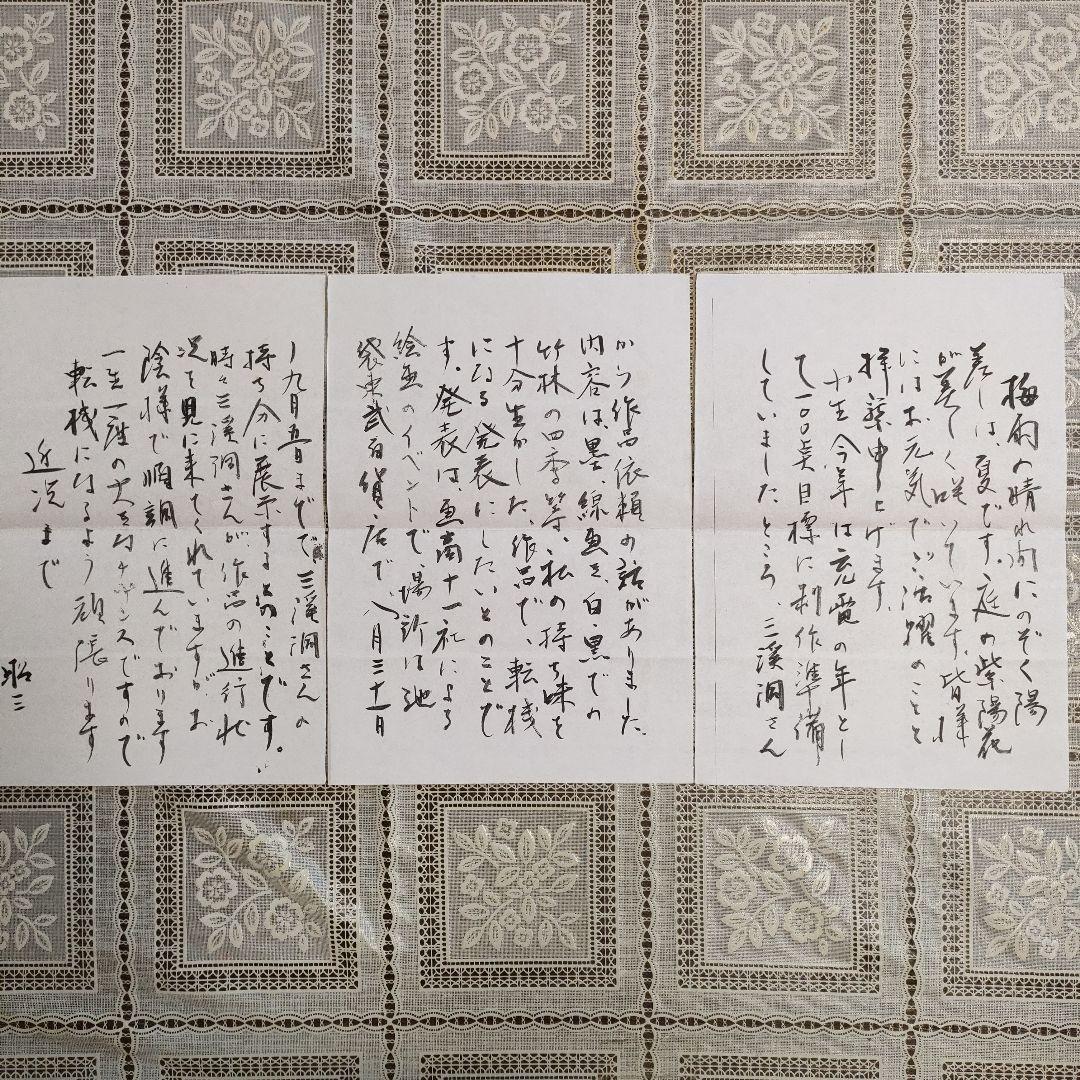 梅雨の晴れ間にのぞく陽
差しは、夏です。庭の紫陽花
が美しく咲いています。皆様
にはお元気でご活躍のことと
拝察申し上げます。
小生今年は充電の年とし
て一〇〇点目標に制作準備
していましたところ、三溪洞さん
から作品依頼の話がありました。
内容は、墨、線画を、白、黒での
竹林の四季等、私の持ち味を
十分生かした、作品で、転機
になる発表にしたいとのことで
す。発表は、画商十一社による
絵画のイベントで、場所は池
袋東武百貨店で、八月三十一日
〜九月五日までで三溪洞さんの
持ち分に展示するとのことです。
時々三溪洞さんが、作品の進行状
況を見に来てくれていますがお
陰様で順調に進んでおります
一生一度の大きなチャンスですので
転機になるよう頑張ります
近況まで
昭三